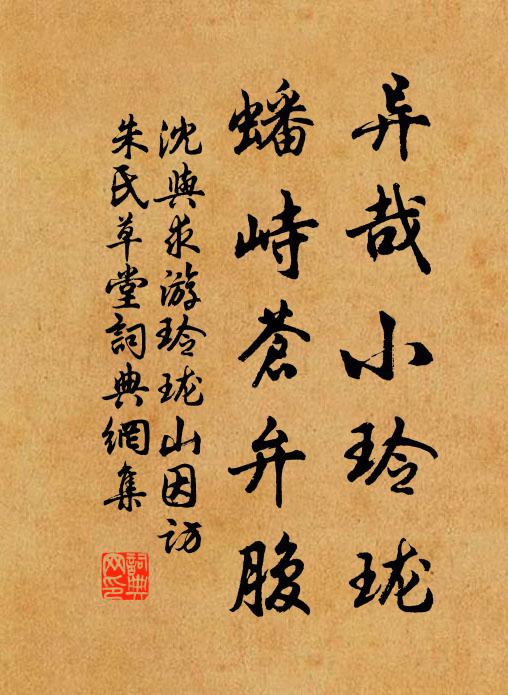 异哉小玲珑
蟠峙苍弁腹
沈与求游玲珑山因访
朱氏草堂词典网集
词典网印